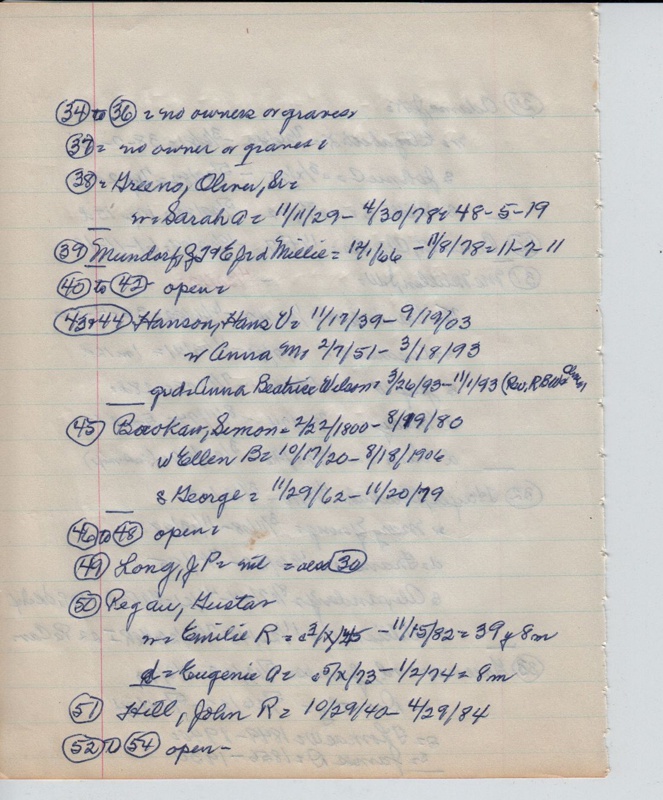 (34) to (36) = no owners or graves
(37) = no owner or graves =
(38) = Greeno, Oliver, Sr =
w = Sarah A = 11/11/29 - 4/30/78 = 48-5-19
(39) Mundorf, J T & E fr d Millie = 12/1/66 - 11/8/78 = 11-7-11
(40) to (42) open =
(43 & 44) Hanson, Hans V = 11/17/39 - 9/19/03
w Anna M = 2/7/51 - 3/18/93
grd = Anna Beatrice Wilson = 3/26/93 - 11/1/93 (Rev. R B
(45) Bookar, Simon = 2/22/1800 - 8/19/80
w Ellen B = 10/17/20 - 8/18/1906
s George = 11/29/62 - 11/20/79
(46) to (48) open =
(49) Long, J P = = also (30)
(50) Regau, Gustav
w = Emilie R = c 3/x/45 - 11/15/82 = 39 y 8m
d = Eugenie A = c 5/x/73 - 1/2/74 = 8m
(51) Hill, John R = 10/29/42 - 4/29/84
(52) to (54) open -